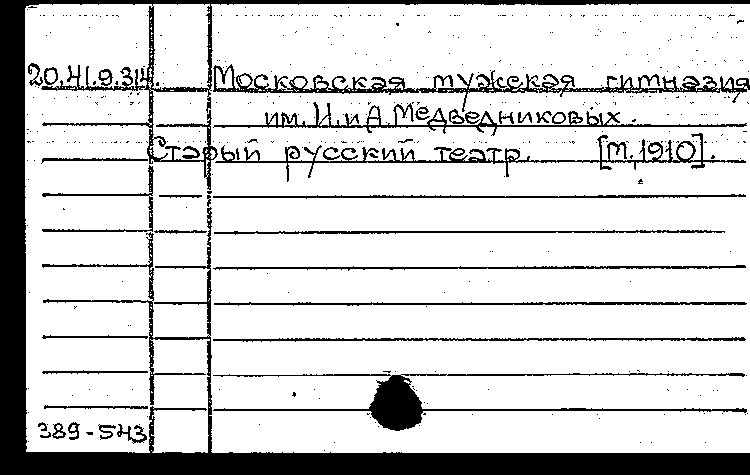 20.41.9.314. Московская мужская гимназия
им. И. и А. Медведниковых.
Старый русский театр. [М, 1910].
389-543